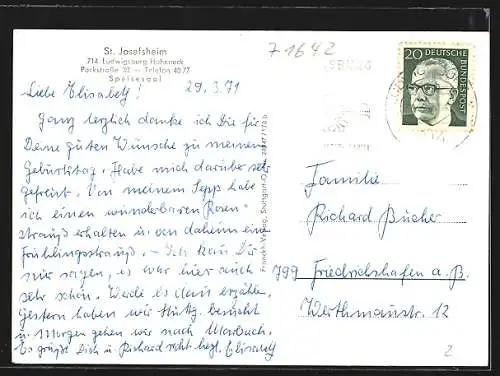 St. Josefsheim
714 Ludwigsburg Hoheneck
Parkstraße 32 — Telefon 4077
Speisesaal
7 1642
20
DEUTSCHE BUNDESPOST
29.3.71
Liebe Elisabeth!
Ganz herzlich danke ich Dir für
Deine guten Wünsche zu meinem
Geburtstag. Habe mich darüber sehr
gefreut. Von meinem Sepp habe
ich einen wunderbaren Rosen-
strauß erhalten u. von daheim ein
Frühlingsstrauß. – Ich kann Dir
nur sagen, es war hier auch
sehr schön. Werde es dann erzählen.
Gestern haben wir besucht
u. Morgen gehen wir nach Marbach.
Es grüßt Dich u. Richard recht herzl. Elisabeth
Franckh-Verlag, Stuttgart-O
Familie
Richard Bucher
799 Friedrichshafen a. B.
Werthmannstr. 12
2